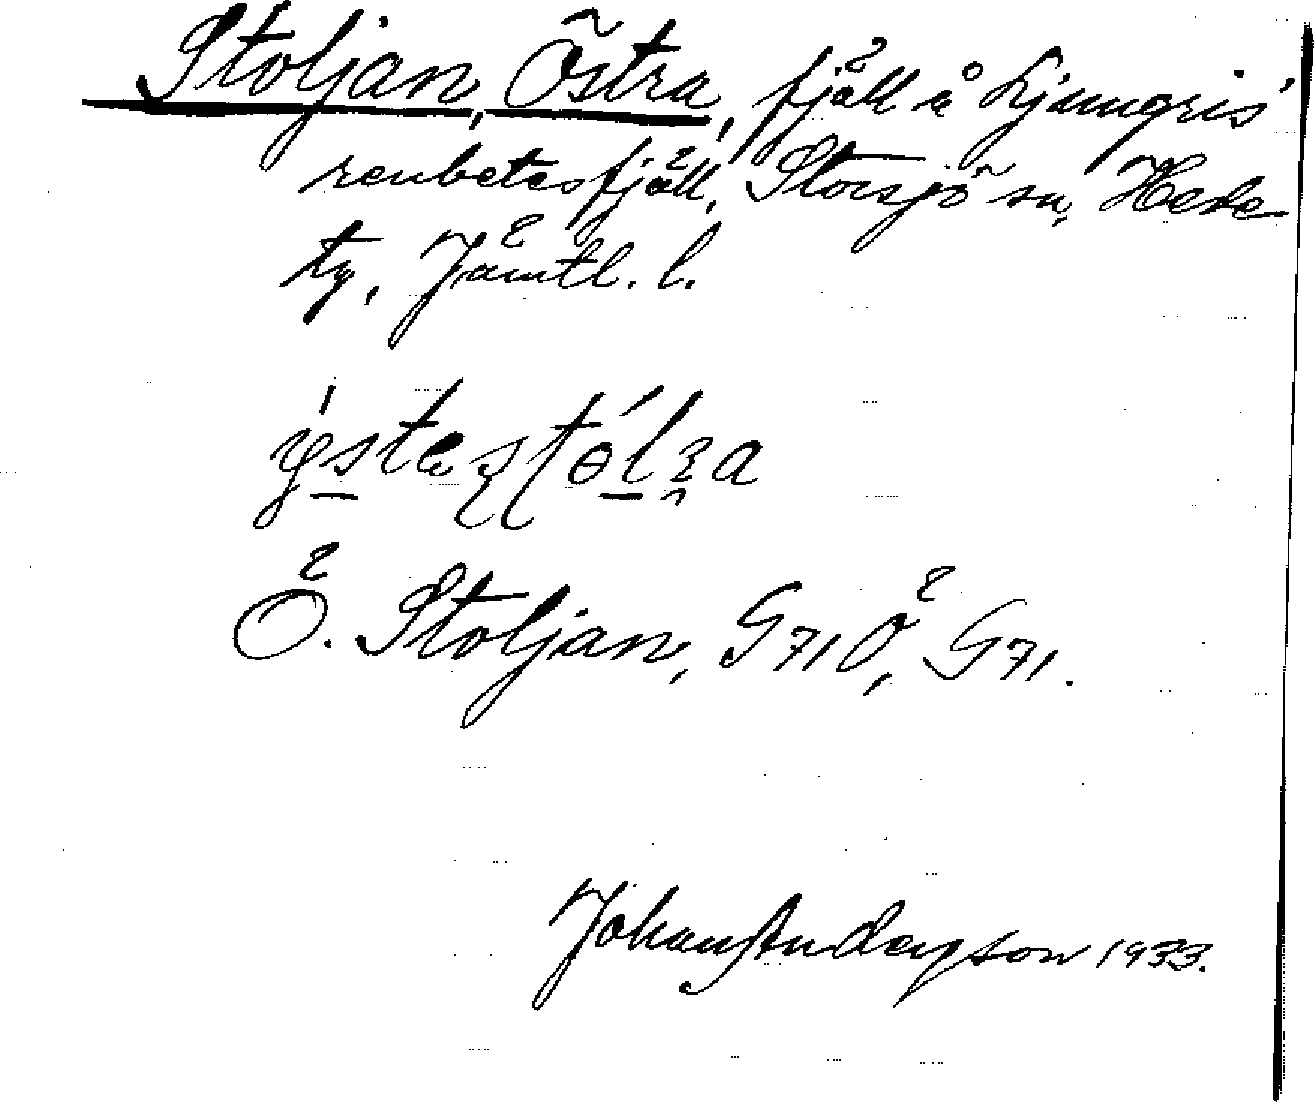 Stoljan, Östra, fjäll å Ljungris
renbetesfjäll, Storsjö sn, Hede
tg, Jämtl. l.
Ö. Stoljan, G71Ö, G71.
Johan Anderson 1933.